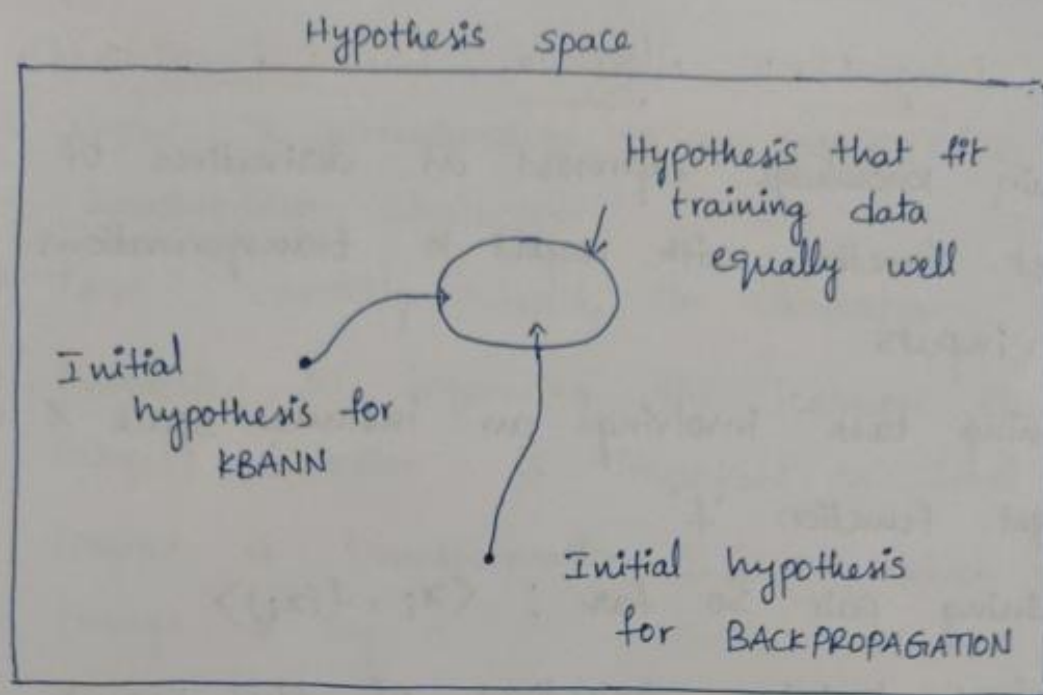 Hypothesis space
Hypothesis that fit
training data
equally well
Initial
hypothesis for
KBANN
Initial hypothesis
for BACKPROPAGATION